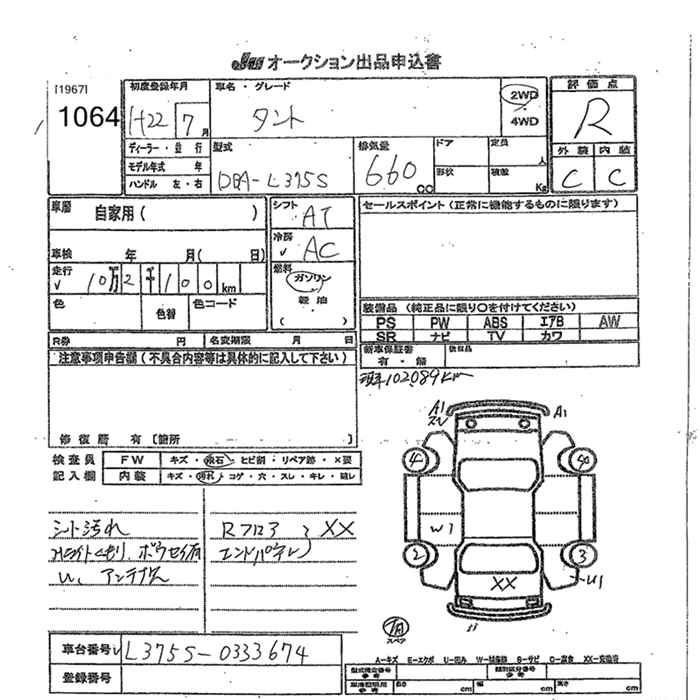 JU オークション出品申込書
[1967]
1064
初度登録年月
H22 7月
ディーラー・並行
モデル年式 年
ハンドル 左・右
車名・グレード
タント
2WD
4WD
型式
DBA-L375S
排気量
660 CC
ドア
定員 人
形状
積載 Kg
評価点
R
外装 内装
C C
車歴
自家用( )
車検 年 月( 日)
走行
10万2千100km
色
色替
色コード
シフト
AT
冷房
AC
燃料
ガソリン
軽油
( )
セールスポイント(正常に機能するものに限ります)
装備品(純正品に限り○を付けてください)
PS PW ABS エアB AW
SR ナビ TV カワ
新車保証書
有・無
後日品
R券 円 名変期限 月 日
現車102,089Km
注意事項申告欄(不具合内容等は具体的に記入して下さい)
修復歴 有〔箇所 〕
検査員
記入欄
FW キズ・飛石・ヒビ割・リペア跡・×要
内装 キズ・汚れ・コゲ・穴・スレ・キレ・破レ
シート汚れ
Rフロア XX
エンドパネル
A1
A1
4
4
W1
2
3
XX
U1
スペア
A-キズ E-エクボ U-凹み W-補修跡 S-サビ C-腐食 XX-交換済
車台番号
L375S-0333674
登録番号
型式指定番号
参考
類別区分番号
参考
長さ cm
幅 cm
高さ cm